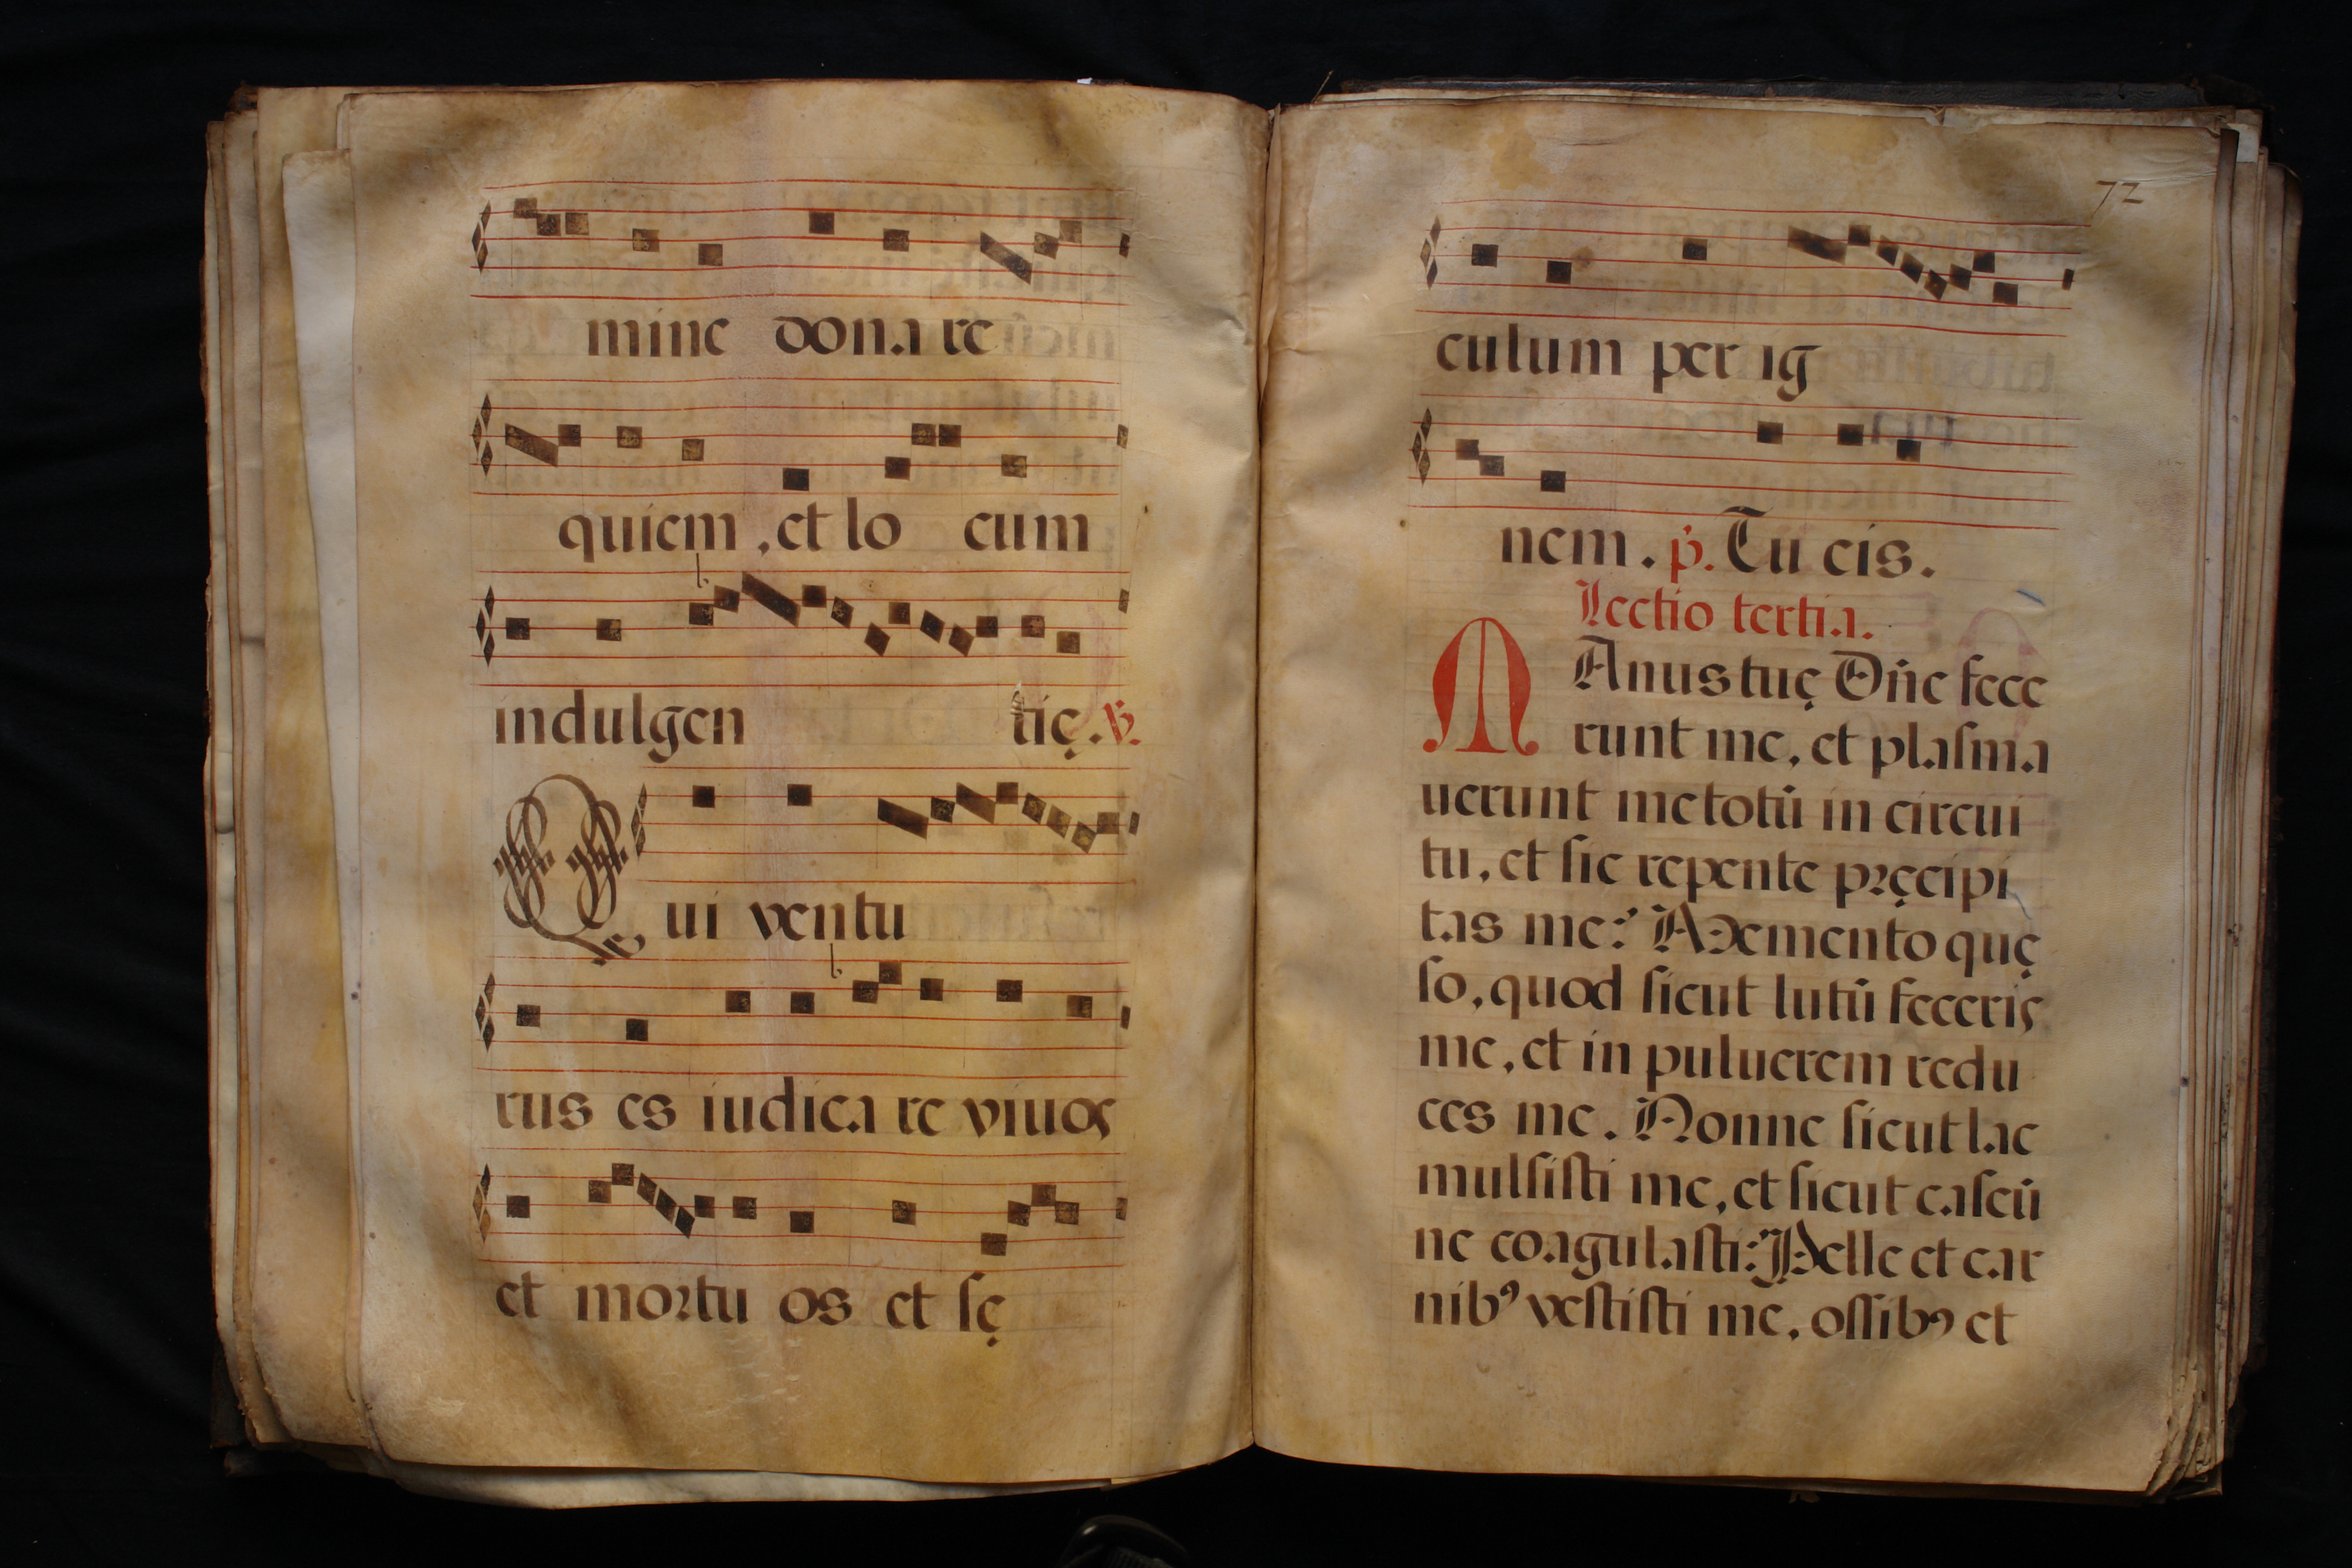 mine dona re
quiem, et lo cum
indulgen tię. ℣.
Qui ventu
rus es iudica re viuos
et moꝛtu os et ſę
72
culum per ig
nem. p̃. Tu eis.
Lectio tertia.
MAnus tuę Dñe fece
runt me, et plaſma
uerunt me totū in circui
tu, et ſic repente pꝛęcipi
tas me: Memento quę
ſo, quod ſicut lutū feceris
me, et in puluerem redu
ces me. Nonne ſicut lac
mulſiſti me, et ſicut caſeū
me coagulaſti: Pelle et car
nibꝰ veſtiſti me, oſſibꝰ et